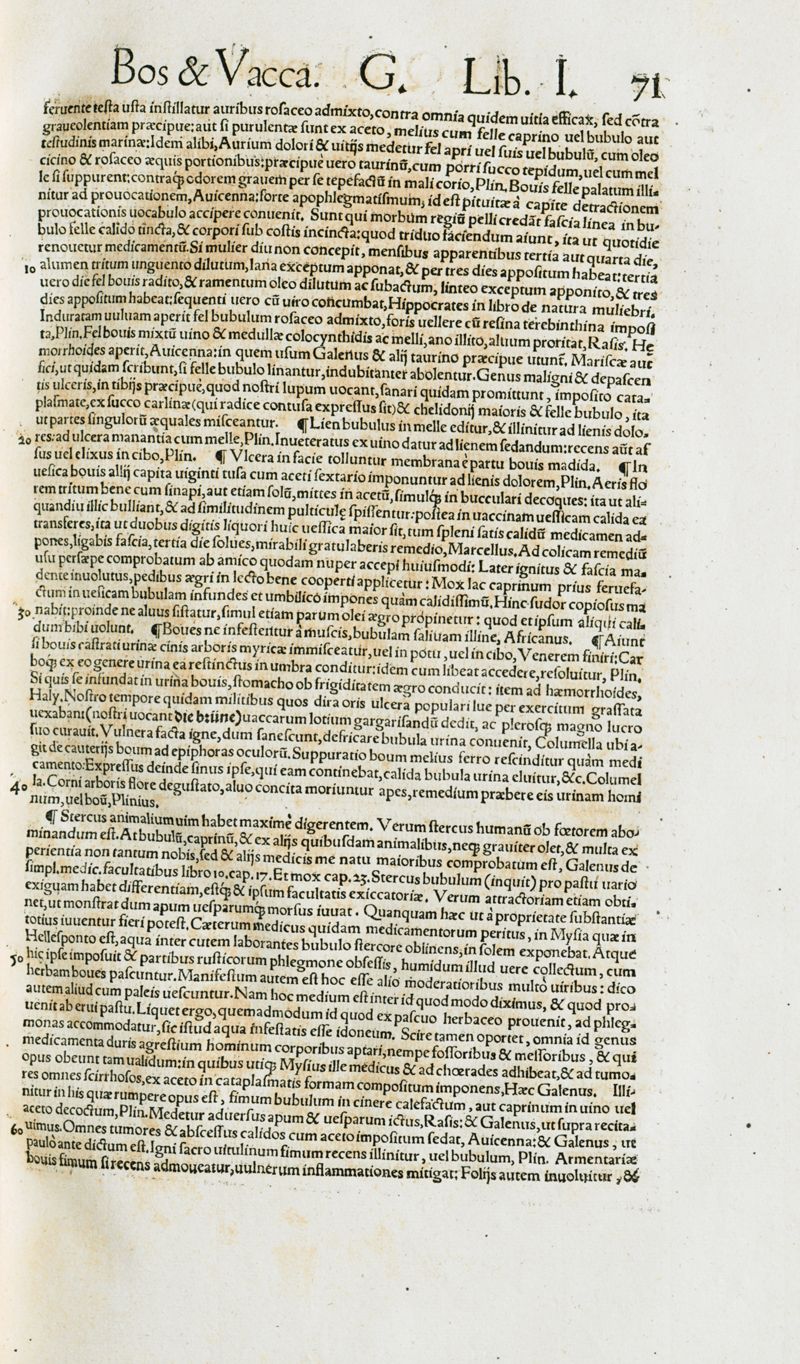 Bos & Vacca. G. Lib. I. 71
feruente testa usta instillatur auribus rosaceo admixto, contra omnia quidem uitia efficax, sed cōtra
graueolentiam præcipue: aut si purulentæ sunt ex aceto, melius cum felle caprino uel bubulo aut
testudinis marinæ: Idem alibi, Aurium dolori & uitijs medetur fel apri uel suis uel bubulū, cum oleo
cicino & rosaceo æquis portionibus: præcipue uero taurinū, cum porri succo tepidum, uel cum mel
le si suppurent: contraq́; odorem grauem per se tepefactū in mali corio, Plin. Bouis felle palatum illi-
nitur ad prouocationem, Auicenna: forte apophlegmatismum, id est pituitæ à capite detractionem
prouocationis uocabulo accipere conuenit. Sunt qui morbum regiū pelli credāt fascia linea in bu-
bulo felle calido tincta, & corpori sub costis incincta: quod triduo faciendum aiunt, ita ut quotidie
renouetur medicamentū. Si mulier diu non concepit, mensibus apparentibus tertia aut quarta die,
10 alumen tritum unguento dilutum, lana exceptum apponat, & per tres dies appositum habeat: tertia
uero die fel bouis radito, & ramentum oleo dilutum ac subactum, linteo exceptum apponito, & tres
dies appositum habeat: sequenti uero cū uiro concumbat, Hippocrates in libro de natura muliebri.
Induratam uuluam aperit fel bubulum rosaceo admixto, foris uellere cū resina terebinthina imposi
ta, Plin. Fel bouis mixtū uino & medullæ colocynthidis ac melli, ano illito, aluum proritat, Rasis. He
morrhoides aperit, Auicenna: in quem usum Galenus & alij taurino præcipue utunt̄. Mariscæ aut̄
fici, ut quidam scribunt, si felle bubulo linantur, indubitanter abolentur. Genus maligni & depascen
tis ulceris, in tibijs præcipue, quod nostri lupum uocant, sanari quidam promittunt, imposito cata-
plasmate, ex succo carlinæ (qui radice contusa expressus sit) & chelidonij maioris & felle bubulo, ita
ut partes singulorū æquales misceantur. ¶ Lien bubulus in melle editur, & illinitur ad lienis dolo-
20 res: ad ulcera manantia cum melle, Plin. Inueteratus ex uino datur ad lienem sedandum: recens aūt as
sus uel elixus in cibo, Plin. ¶ Vlcera in facie tolluntur membrana è partu bouis madida. ¶ In
uesica bouis allij capita uiginti tusa cum aceti sextario imponuntur ad lienis dolorem, Plin. Aeris flo
rem tritum bene cum sinapi, aut etiam solū, mittes in acetū, simulq́; in bucculari decoques: ita ut ali-
quandiu illic bulliant, & ad similitudinem pulticulę spissentur: postea in uaccinam uesicam calida ea
transferes, ita ut duobus digitis liquori huic uesica maior sit, tum spleni satis calidū medicamen ad-
pones, ligabis fascia, tertia die solues, mirabili gratulaberis remedio, Marcellus. Ad colicam remediū
usu persæpe comprobatum ab amico quodam nuper accepi huiusmodi: Later ignitus & fascia ma-
dente inuolutus, pedibus ægri in lecto bene cooperti applicetur: Mox lac caprinum prius feruefa-
ctum in uesicam bubulam infundes et umbilico impones quàm calidissimū, Hinc sudor copiosus ma
30 nabit: proinde ne aluus sistatur, simul etiam parum olei ægro propinetur: quod et ipsum aliqui cali-
dum bibi uolunt. ¶ Boues ne infestentur à muscis, bubulam saliuam illine, Africanus. ¶ Aiunt
si bouis castrati urinæ cinis arboris myricæ immisceatur, uel in potu, uel in cibo, Venerem finiri: Car
boq́; ex eo genere urina ea restinctus in umbra conditur: idem cum libeat accedere, resoluitur, Plin.
Si quis se infundat in urina bouis, stomacho ob frigiditatem ægro conducit: item ad hæmorrhoides,
Haly. Nostro tempore quidam militibus quos dira oris ulcera populari lue per exercitum grassata
uexabant (nostri uocant die brüne) uaccarum lotium gargarisandū dedit, ac plerosq́; magno lucro
suo curauit. Vulnera facta igne, dum sanescunt, defricare bubula urina conuenit, Columella ubi a-
git de cauterijs boum ad epiphoras oculorū. Suppuratio boum melius ferro rescinditur quàm medi
camento: Expressus deinde sinus ipse, qui eam continebat, calida bubula urina eluitur, &c. Columel
40 la. Corni arboris flore degustato, aluo concita moriuntur apes, remedium præbere eis urinam homi
num, uel boū, Plinius.
¶ Stercus animalium uim habet maximè digerentem. Verum stercus humanū ob fœtorem abo-
minandum est. At bubulū, caprinū, & ex alijs quibusdam animalibus, neq́; grauiter olet, & multa ex
perientia non tantum nobis, sed & alijs medicis me natu maioribus comprobatum est, Galenus de
simpl. medic. facultatibus libro 10. cap. 17. Et mox cap. 23. Stercus bubulum (inquit) pro pastu uario
exiguam habet differentiam, estq́; & ipsum facultatis exiccatoriæ. Verum attractoriam etiam obti-
net, ut monstrat dum apum uesparumq́; morsus iuuat. Quanquam hæc ut à proprietate substantiæ
totius iuuentur fieri potest. Cæterum medicus quidam medicamentorum peritus, in Mysia quæ in
Hellesponto est, aqua inter cutem laborantes bubulo stercore oblinens, in solem exponebat. Atque
50 hic ipse imposuit & partibus rusticorum phlegmone obsessis, humidum illud uere collectum, cum
herbam boues pascuntur. Manifestum autem est hoc esse alio moderatioribus multo uiribus: dico
autem aliud cum paleis uescuntur. Nam hoc medium est inter id quod modo diximus, & quod pro-
uenit ab erui pastu. Liquet ergo, quemadmodum id quod ex pascuo herbaceo prouenit, ad phleg-
monas accommodatur, sic istud aqua infestatis esse idoneum. Scire tamen oportet, omnia id genus
medicamenta duris agrestium hominum corporibus aptari, nempe fossoribus & messoribus, & qui
opus obeunt tam ualidum: in quibus utiq́; Mysius ille medicus & ad chœrades adhibeat, & ad tumo-
res omnes scirrhosos, ex aceto in cataplasmatis formam compositum imponens, Hæc Galenus. Illi-
nitur in his quæ rumpere opus est, fimum bubulum in cinere calefactum, aut caprinum in uino uel
aceto decoctum, Plin. Medetur aduersus apum & uesparum ictus, Rasis: & Galenus, ut supra recita-
60 uimus. Omnes tumores & abscessus calidos cum aceto impositum sedat, Auicenna: & Galenus, ut
paulò ante dictum est. Igni sacro uitulinum fimum recens illinitur, uel bubulum, Plin. Armentariæ
bouis fimum si recens admoueatur, uulnerum inflammationes mitigat: Folijs autem inuoluitur, &